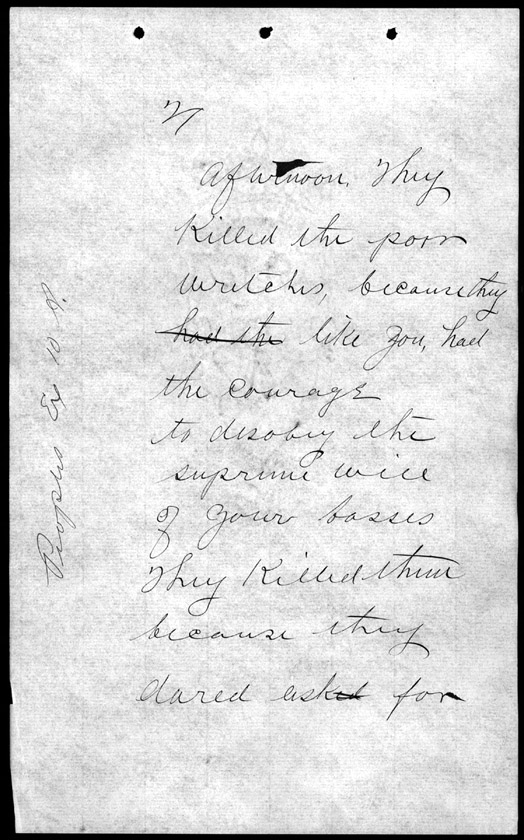 2/
Afternoon. They
killed the poor
wretches, because they
had the like you, had
the courage
to disobey the
supreme will
of your bosses
They killed them
because they
dared asked for
Peoples Ex 10 A.